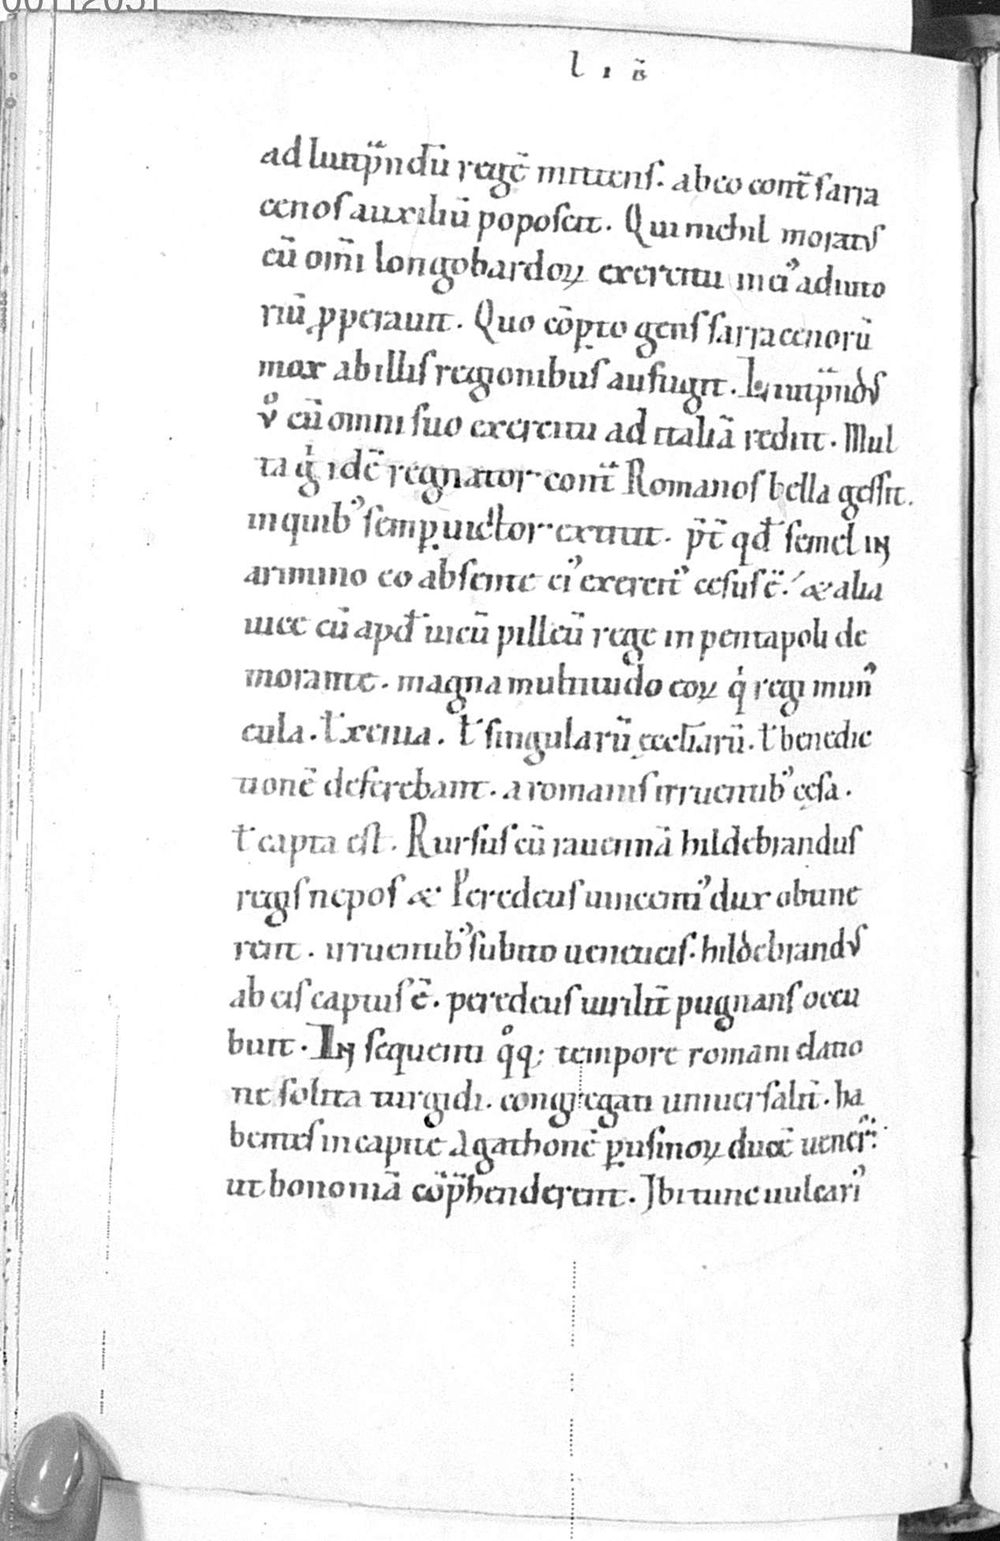 00112051
l ı b̄
ad liutp̄ndū regē mittens. ab eo cont̄ sarra
cenos auxiliū poposcit. Qui nichil moratꝰ
cū om̄i longobardoꝝ exercitu in eiꝰ adiuto
riū ꝓperauit. Quo cōꝑto gens sarracenorū
mox ab illis regionibus aufugit. Liutp̄ndꝰ
vͦ cū omni suo exercitu ad italiā rediit. Mul
ta qͥ idē regnator cont̄ Romanos bella gessit.
in quibꝰ semꝑ uictor extitit. p̄t̄ qđ semel in
arimino eo absente eiꝰ exercitꝰ cesus ē. & alia
uice cū apđ uicū pilleū rege in pentapoli de
morante. magna multitudo eoꝝ qͥ regi munꝰ
cula. ł xenia. ł singularū ęccłiarū. ł benedic
tionē deferebant. a romanis irruentibꝰ cęsa.
ł capta est. Rursus cū rauennā hildebrandus
regis nepos & Peredeus uincentinꝰ dux obtine
rent. irruentibꝰ subito ueneticis. hildebrandꝰ
ab eis captus ē. peredeus uirilit̄ pugnans occu
buit. In sequenti qͦq; tempore romani elatio
ne solita turgidi. congregati uniuersalit̄. ha
bentes in capite Agathonē ꝑusinoꝝ ducē uener̄.
ut bononiā cōp̄henderent. Ibi tunc uulcariꝰ